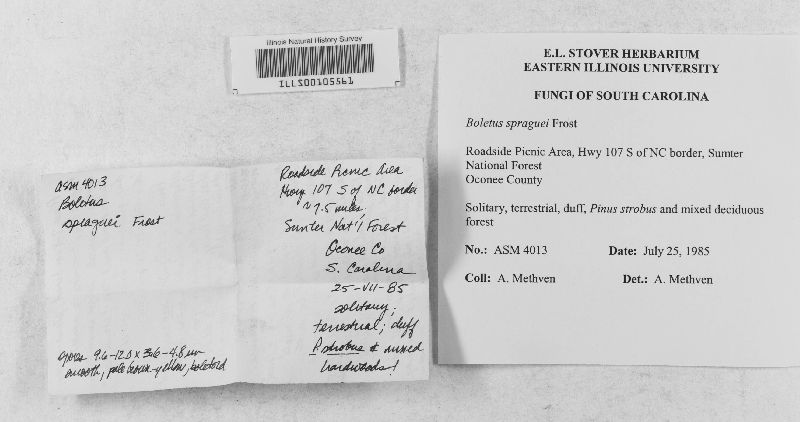 Illinois Natural History Survey
ILLS00105561
E.L. STOVER HERBARIUM
EASTERN ILLINOIS UNIVERSITY
FUNGI OF SOUTH CAROLINA
Boletus spraguei Frost
Roadside Picnic Area, Hwy 107 S of NC border, Sumter
National Forest
Oconee County
Solitary, terrestrial, duff, Pinus strobus and mixed deciduous
forest
No.: ASM 4013 Date: July 25, 1985
Coll: A. Methven Det.: A. Methven
ASM 4013
Boletus
spraguei Frost
spores 9.6-12.0 x 3.6-4.8 um
smooth, pale brown-yellow, boletoid
Roadside Picnic Area
Hwy 107 S of NC border
~ 7.5 miles,
Sumter Nat'l Forest
Oconee Co
S. Carolina
25-VII-85
solitary;
terrestrial; duff
P. strobus & mixed
hardwoods!